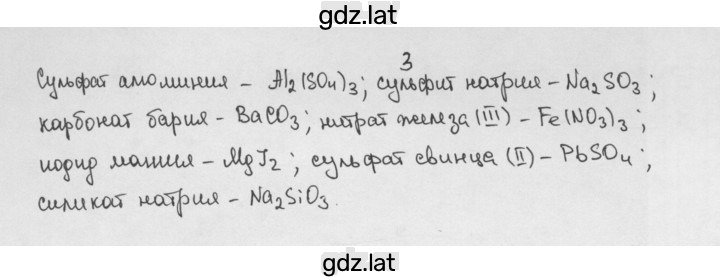 gdz.lat
3
Сульфат алюминия – Al2(SO4)3; сульфит натрия – Na2SO3;
карбонат бария – BaCO3; нитрат железа (III) – Fe(NO3)3;
иодид магния – MgI2; сульфат свинца (II) – PbSO4;
силикат натрия – Na2SiO3.
gdz.lat